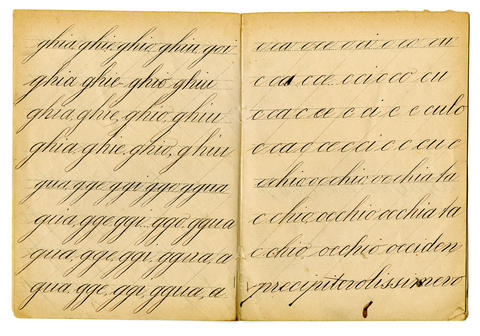 ghia ghie ghie ghiu goi
ghia ghie ghio ghiu
ghia, ghie, ghio, ghiu
ghia, ghie, ghio, ghiu
gua, gge ggi gge ggua
gua, gge ggi gge, ggua
gua, gge ggi, ggua, a
gua, gge, ggi, ggua, a
e ca e ce e ci e co cu
e ca ce e ci e co cu
e ca c ce c ci c c culo
e ca c ce c ci c c cu c
occhio occhio occhia ta
c chio occhio occhia ta
c chio, occhio occiden
precipitevolissimevo